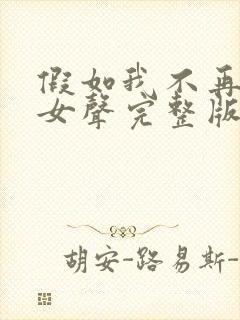 假如我不再
女聲完整版
胡安-路易斯-